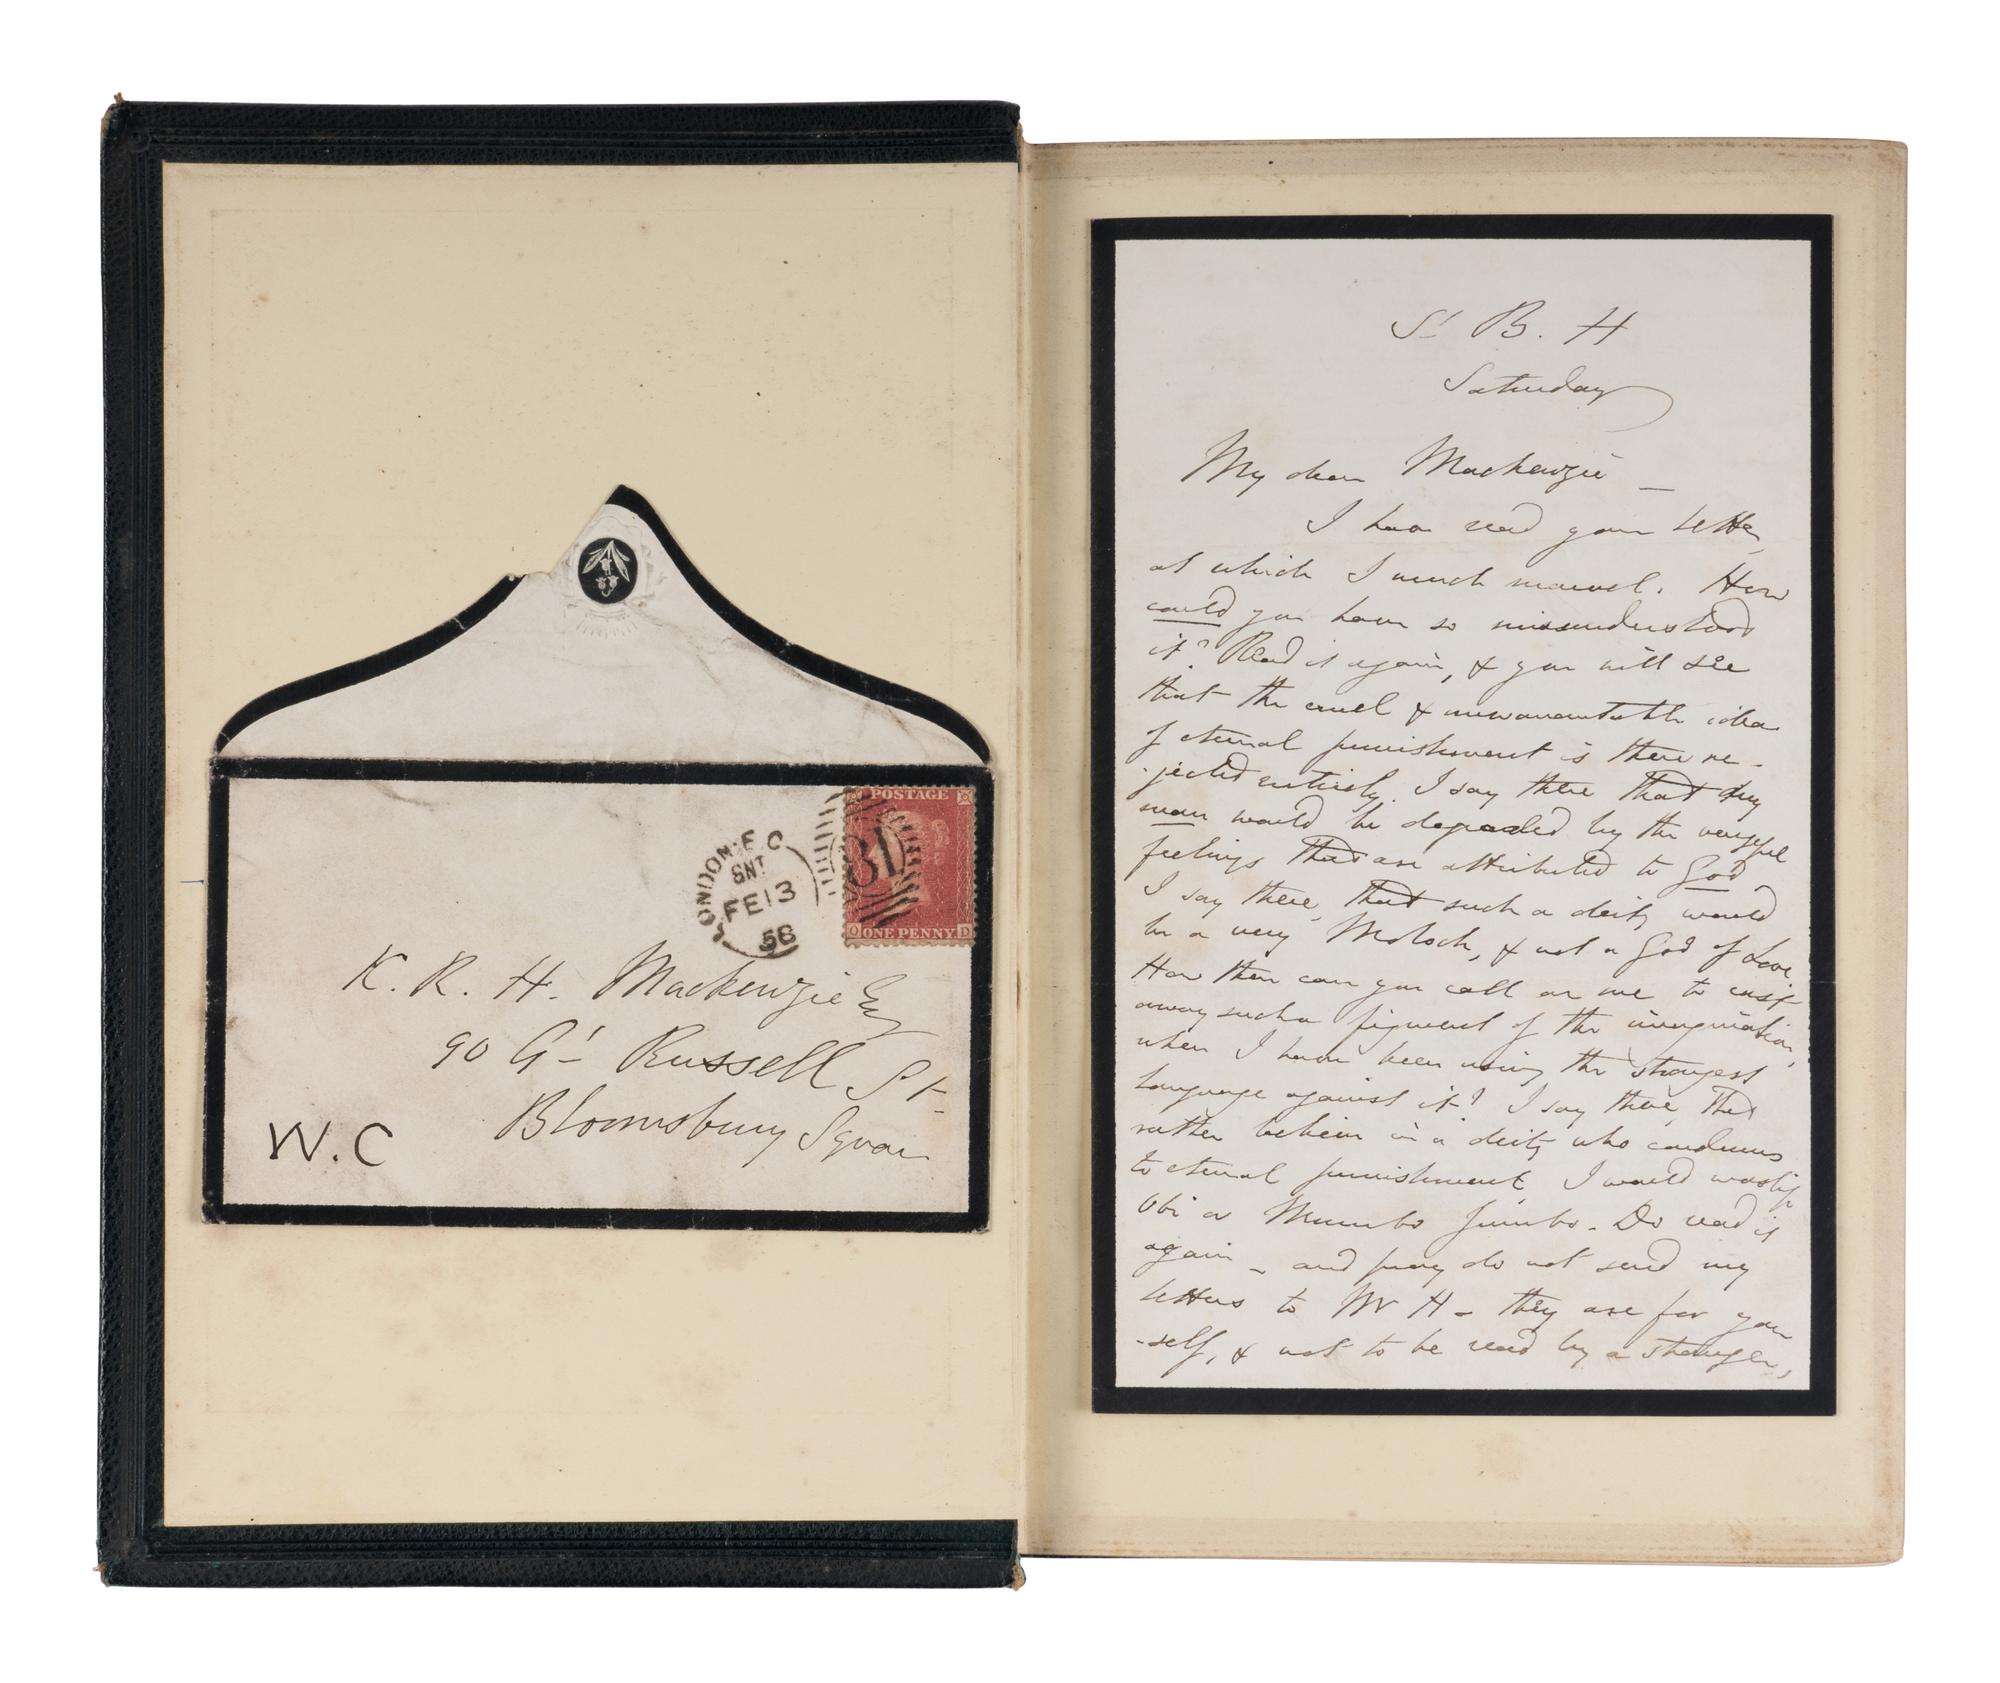 POSTAGE
31
O ONE PENNY D
LONDON·E.C
8NT
FE13
58
K. R. H. Mackenzie Esq
90 Gt Russell St
Bloomsbury Square
W.C
St B. H
Saturday
My dear Mackenzie —
I have read your letter,
at which I much marvel. How
could you have so misunderstood
it? Read it again, & you will see
that the cruel & unwarrantable idea
of eternal punishment is there re-
-jected entirely. I say there that any
man would be degraded by the vengeful
feelings that are attributed to God
I say there, that such a deity would
be a very Moloch, & not a God of Love
How then can you call on me to cast
away such a figment of the imagination,
when I have been using the strongest
language against it? I say there, that
rather believe in a deity who condemns
to eternal punishment, I would worship
Obi or Mumbo Jumbo. Do read it
again – and pray do not send my
letters to Mr H – they are for your
-self, & not to be read by a stranger,